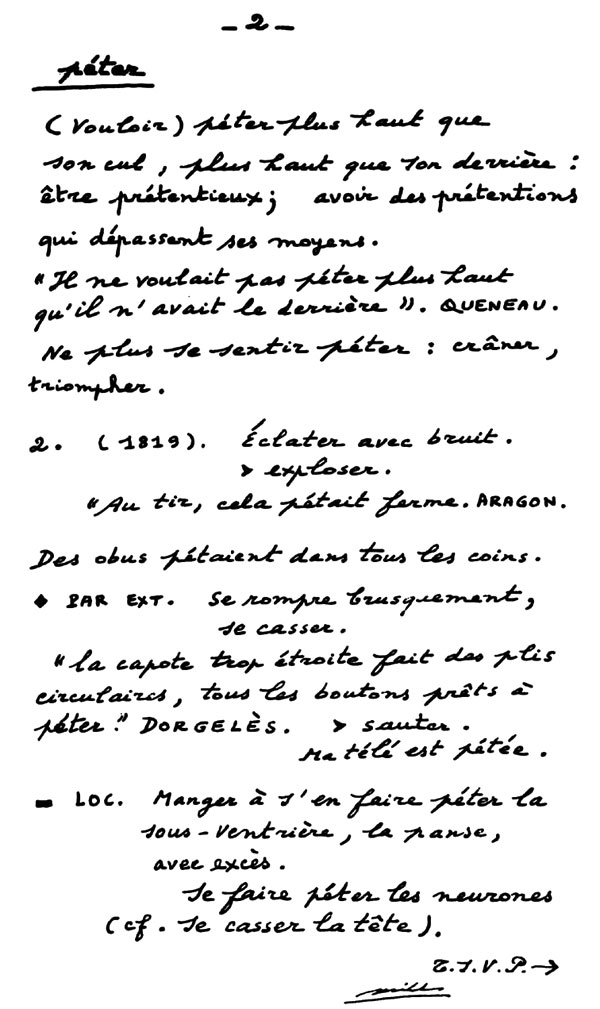 - 2 -
péter
(Vouloir) péter plus haut que
son cul, plus haut que son derrière :
être prétentieux ; avoir des prétentions
qui dépassent ses moyens.
"Il ne voulait pas péter plus haut
qu'il n'avait le derrière ". QUENEAU.
Ne plus se sentir péter : crâner,
triompher.
2. (1819). Éclater avec bruit.
> exploser.
"Au tir, cela pétait ferme. ARAGON.
Des obus pétaient dans tous les coins.
◆ PAR EXT. Se rompre brusquement,
se casser.
"la capote trop étroite fait des plis
circulaires, tous les boutons prêts à
péter." DORGELÈS. > sauter.
Ma télé est pétée.
- LOC. Manger à s'en faire péter la
sous-ventrière, la panse,
avec excès.
Se faire péter les neurones
(cf. se casser la tête).
T.S.V.P. →